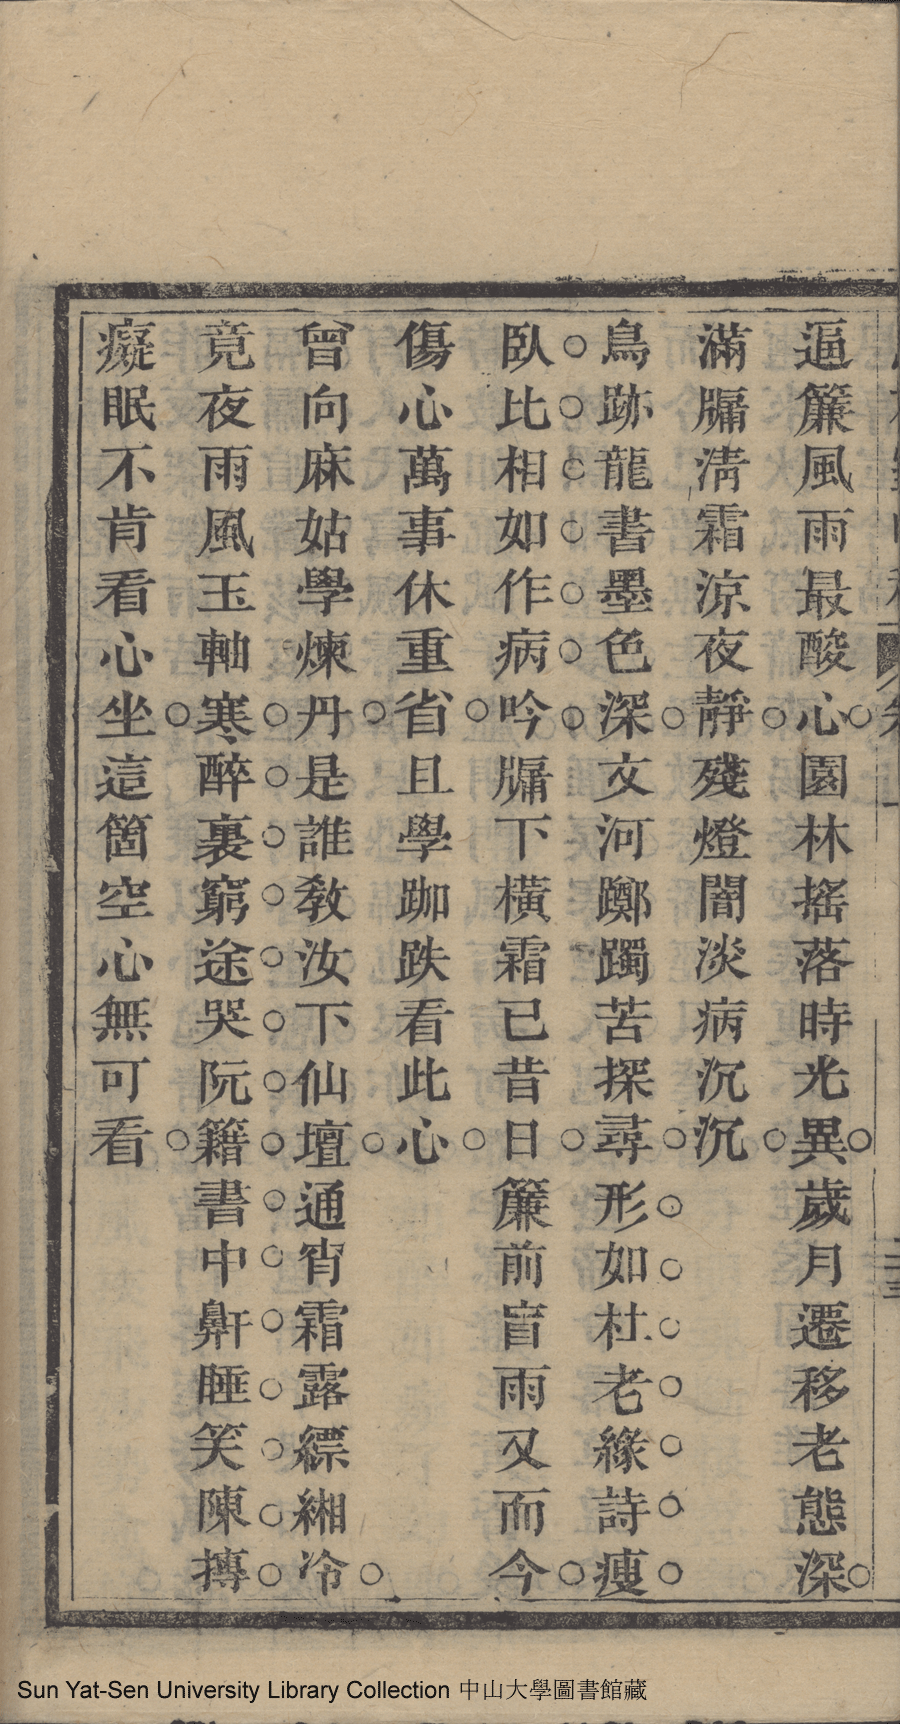 逼簾風雨最酸心園林搖落時光異歲月遷移老態深
滿牖淸霜涼夜靜殘燈闇淡病沉沉
鳥跡龍書墨色深文河躑躅苦探尋形如杜老緣詩瘦
臥比相如作病吟牖下橫霜已昔日簾前盲雨又而今
傷心萬事休重省且學跏趺看此心
曾向麻姑學煉丹是誰敎汝下仙壇通宵霜露縹緗冷
竟夜雨風玉軸寒醉裏窮途哭阮籍書中鼾睡笑陳摶
癡眠不肯看心坐這箇空心無可看
Sun Yat-Sen University Library Collection 中山大學圖書館藏